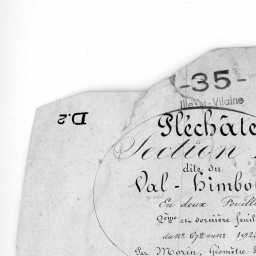 -35-
Ille-et-Vilaine
D.2
Pléchâte
Section
dite du
Val-himbo
En deux
2ème et dernière feuil
du N°
Par Morin, Géomètre